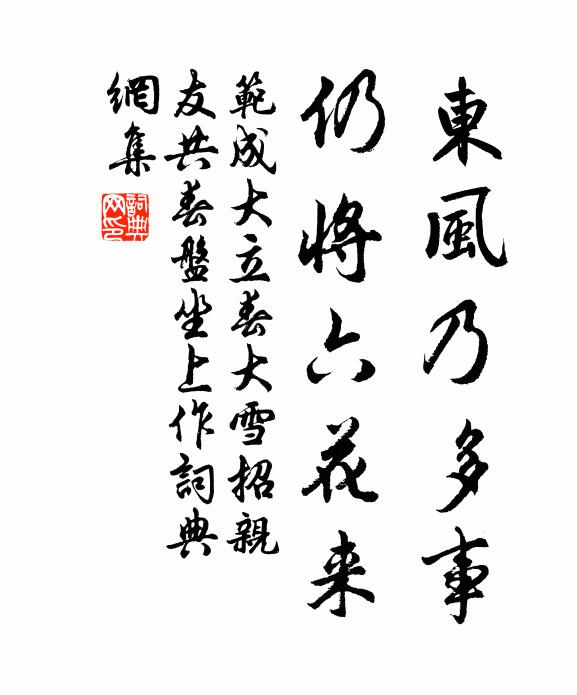 東風乃多事
仍將六花来
範成大立春大雪招親
友共春盤坐上作詞典
網集
詞典网印